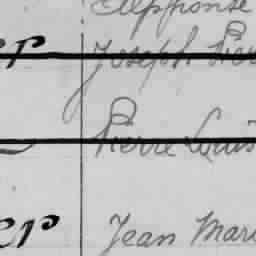 Alphonse
er Joseph Pier
Pierre Louis
er Jean Mari